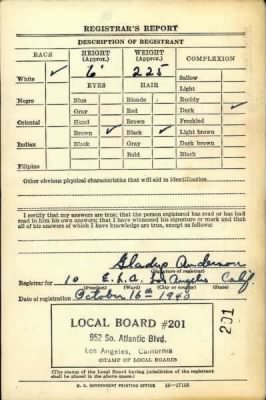 REGISTRAR'S REPORT
DESCRIPTION OF REGISTRANT
RACE HEIGHT (Approx.) WEIGHT (Approx.) COMPLEXION
White ✓ 6' 225 Sallow
EYES HAIR Light
Negro Blue Blonde Ruddy
Gray Red Dark ✓
Oriental Hazel Brown Freckled
Brown ✓ Black ✓ Light brown
Indian Black Gray Dark brown
Bald Black
Filipino
Other obvious physical characteristics that will aid in identification
I certify that my answers are true; that the person registered has read or has had
read to him his own answers; that I have witnessed his signature or mark and that
all of his answers of which I have knowledge are true, except as follows:
Gladys Anderson
(Signature of registrar)
Registrar for 10 E.L.A. Angeles Calif.
(Precinct) (Ward) (City or county) (State)
Date of registration October 16th 1940
LOCAL BOARD #201
952 So. Atlantic Blvd.
Los Angeles, California
(STAMP OF LOCAL BOARD)
201
(The stamp of the Local Board having jurisdiction of the registrant
shall be placed in the above space.)
U. S. GOVERNMENT PRINTING OFFICE 16—17105